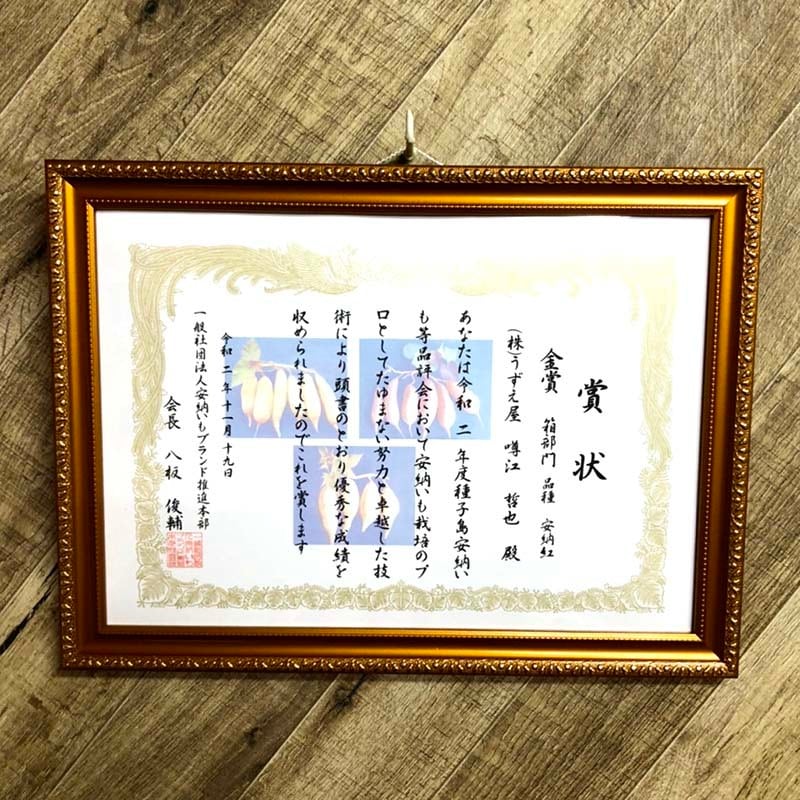 賞状
金賞 箱部門 品種 安納紅
(株)うずえ屋 噂江 哲也 殿
あなたは令和 二 年度種子島安納い
も等品評会において安納いも栽培のプ
ロとしてたゆまない努力と卓越した技
術により頭書のとおり優秀な成績を
収められましたのでこれを賞します
令和 二 年 十一月 十九日
一般社団法人安納いもブランド推進本部
会長 八板 俊輔